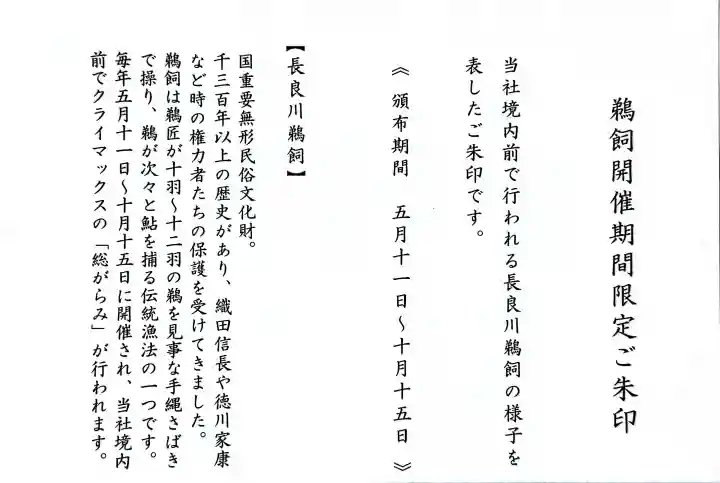 鵜飼開催期間限定ご朱印
当社境内前で行われる長良川鵜飼の様子を
表したご朱印です。
《 頒布期間 五月十一日～十月十五日 》
【長良川鵜飼】
国重要無形民俗文化財。
千三百年以上の歴史があり、織田信長や徳川家康
など時の権力者たちの保護を受けてきました。
鵜飼は鵜匠が十羽～十二羽の鵜を見事な手縄さばき
で操り、鵜が次々と鮎を捕る伝統漁法の一つです。
毎年五月十一日～十月十五日に開催され、当社境内
前でクライマックスの「総がらみ」が行われます。